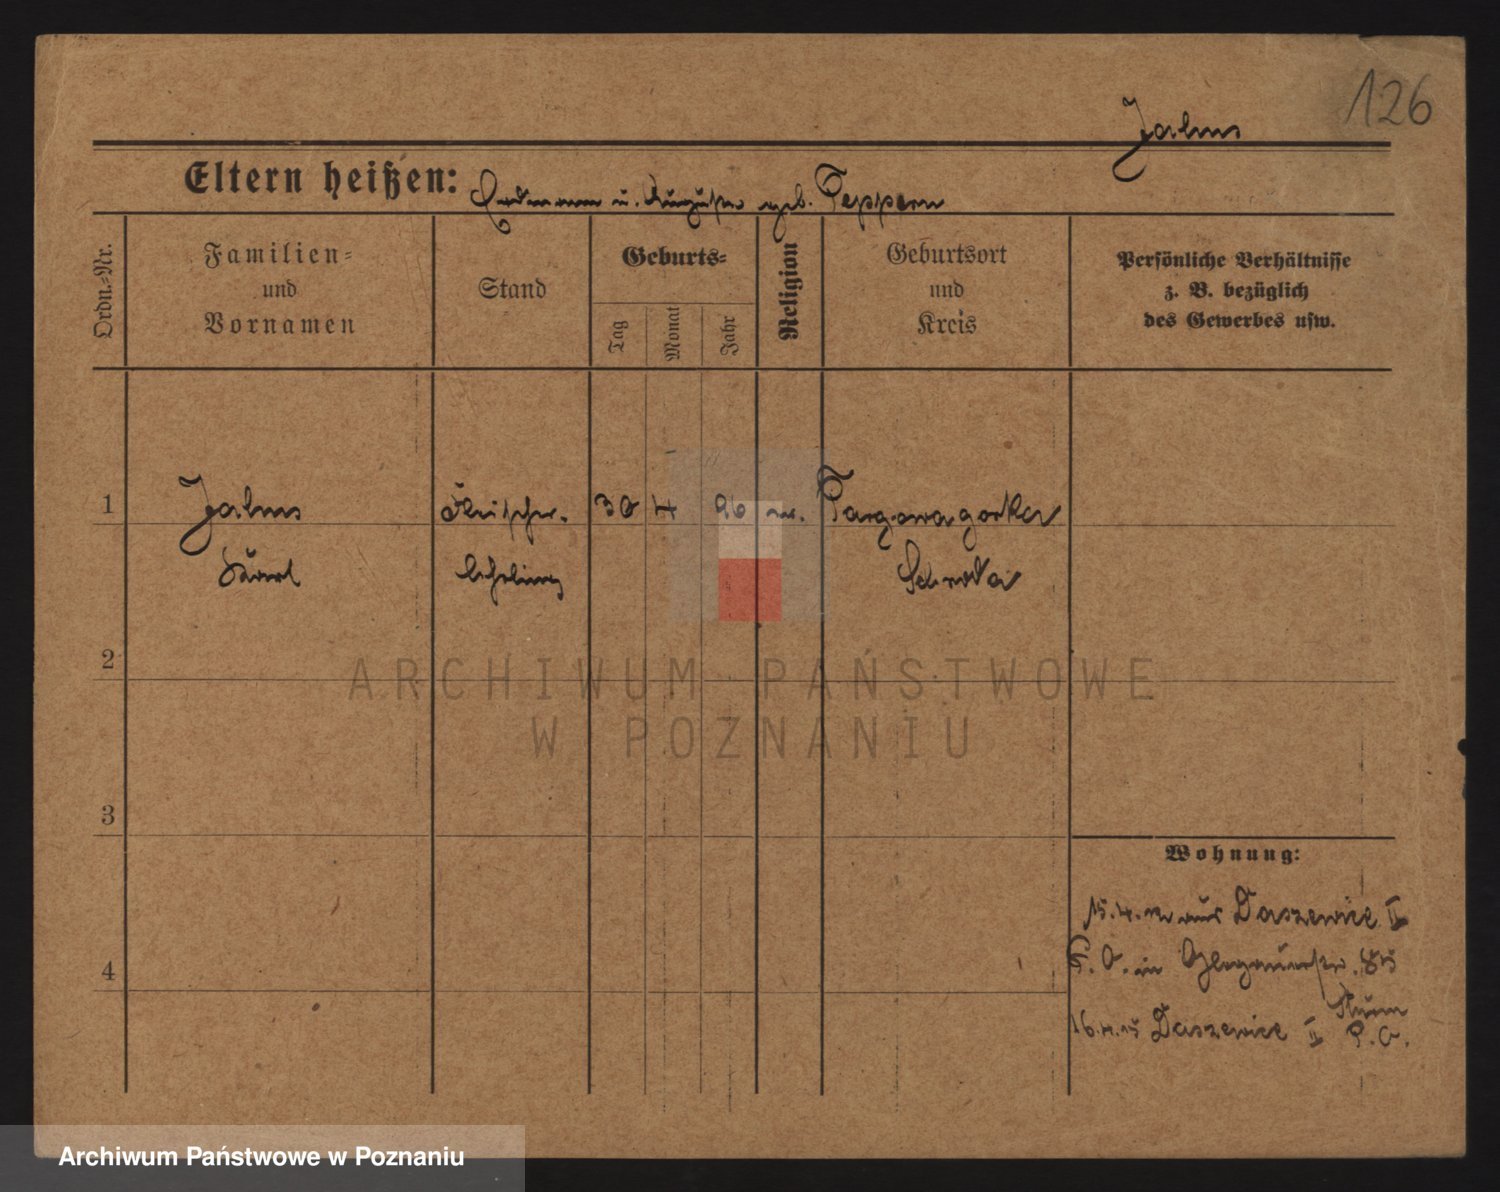 126
Jahns
Eltern heißen: Erdmann u. Auguste geb. Teppern
Ordn.-Nr.
Familien- und Vornamen
Stand
Geburts-
Tag
Monat
Jahr
Religion
Geburtsort und Kreis
Persönliche Verhältnisse
z. B. bezüglich
des Gewerbes usw.
1
Jahns
Karl
Fleischer-
lehrling
30 4 96 ev.
Targowagorka
Schroda
2
3
4
Wohnung:
15.4. aus Daszewice II
P. O. in Glogauerstr. 85
Sturm
16.4.15 Daszewice II P.O.
ARCHIWUM PAŃSTWOWE
W POZNANIU
Archiwum Państwowe w Poznaniu